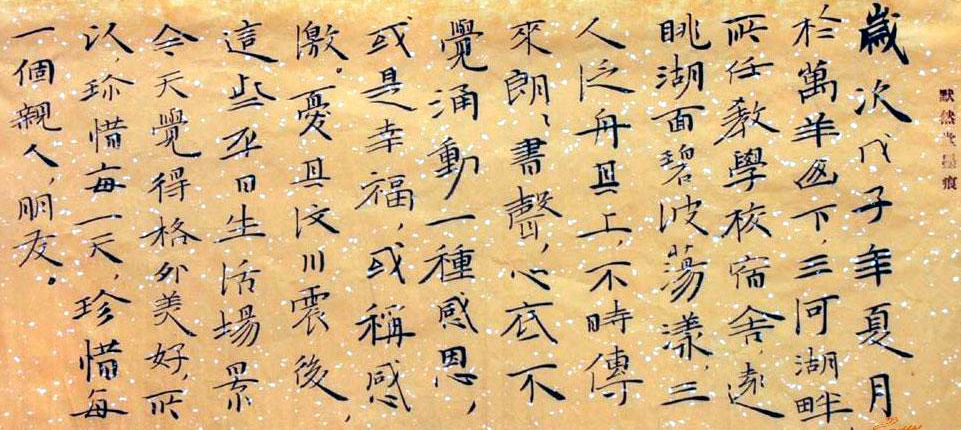 歲次戊子年夏月
於萬羊崮下,三河湖畔
所任教學校宿舍,遠
眺湖面碧波蕩漾,三
人泛舟其上,不時傳
來朗〻書聲,心底不
覺涌動一種感恩,
或是幸福,或稱感
激。憂其汶川震後,
這些平日生活場景
今天覺得格外美好,所
以,珍惜每一天,珍惜每
一個親人,朋友。
默然堂墨痕